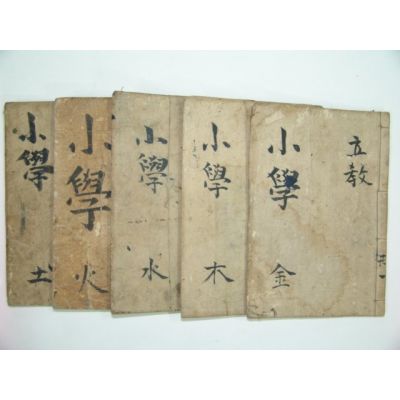 小學 金
立教
共一
小學 木
小學 水
小學 火
小學 土